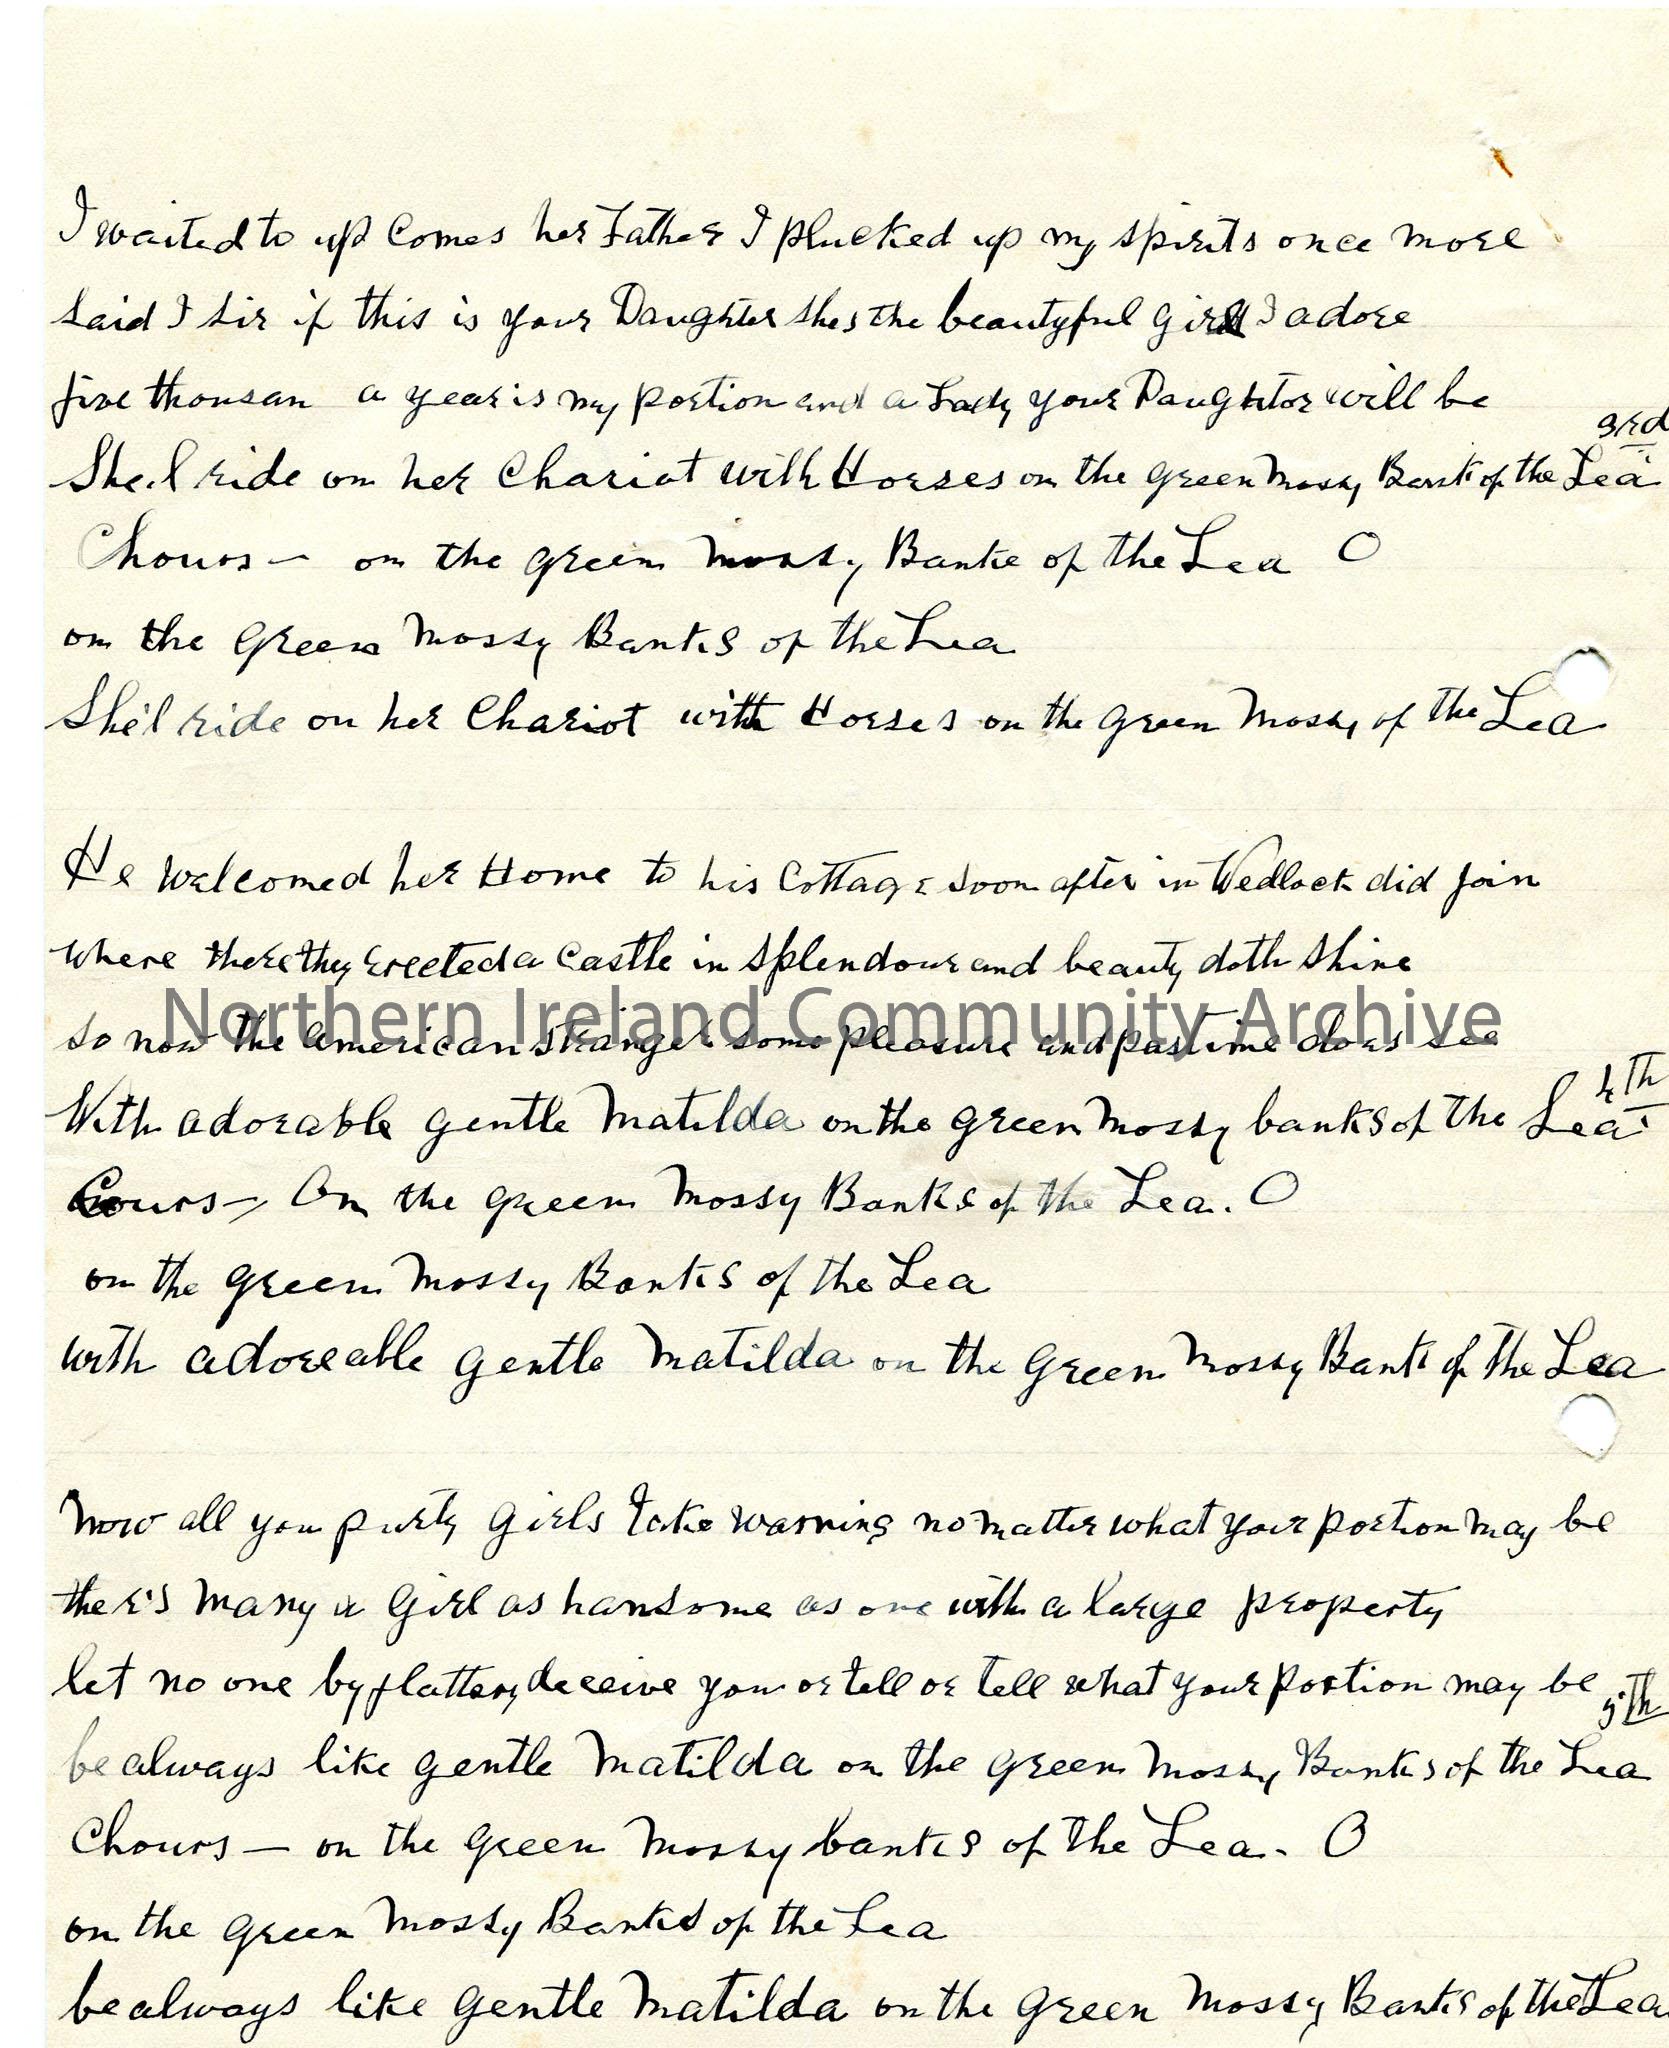 I waited to up Comes her Father I plucked up my spirits once more
Said I Sir if this is your Daughter shes the beautyful girl I adore
five thousan a year is my portion and a Lady your Daughter will be
3rd
She.l ride on her Chariot with Horses on the green mossy Bank of the Lea
Chours - on the green mossy Banke of the Lea O
on the Green Mossy Banks of the Lea
She'l ride on her Chariot with Horses on the green mossy of the Lea
He welcomed her Home to his Cottage soon after in Wedlock did join
where there they erected a Castle in splendour and beauty doth shine
Northern Ireland Community Archive
so now the american stranger some pleasure and pastime does see
4th
With adorable gentle Matilda on the green mossy banks of the Lea
Cours - On the green Mossy Banks of the Lea. O
on the green Mossy Banks of the Lea
with adoreable gentle Matilda on the green Mossy Bank of the Lea
Now all you purty girls take warning no matter what your portion may be
the r's many a Girl as hansome as one with a large property
let no one by flattery deceive you or tell or tell what your portion may be
5th
be always like gentle Matilda on the green mossy Banks of the Lea
Chours - on the green mossy banks of the Lea - O
on the green Mossy Banks of the Lea
be always like gentle Matilda on the green Mossy Banks of the Lea